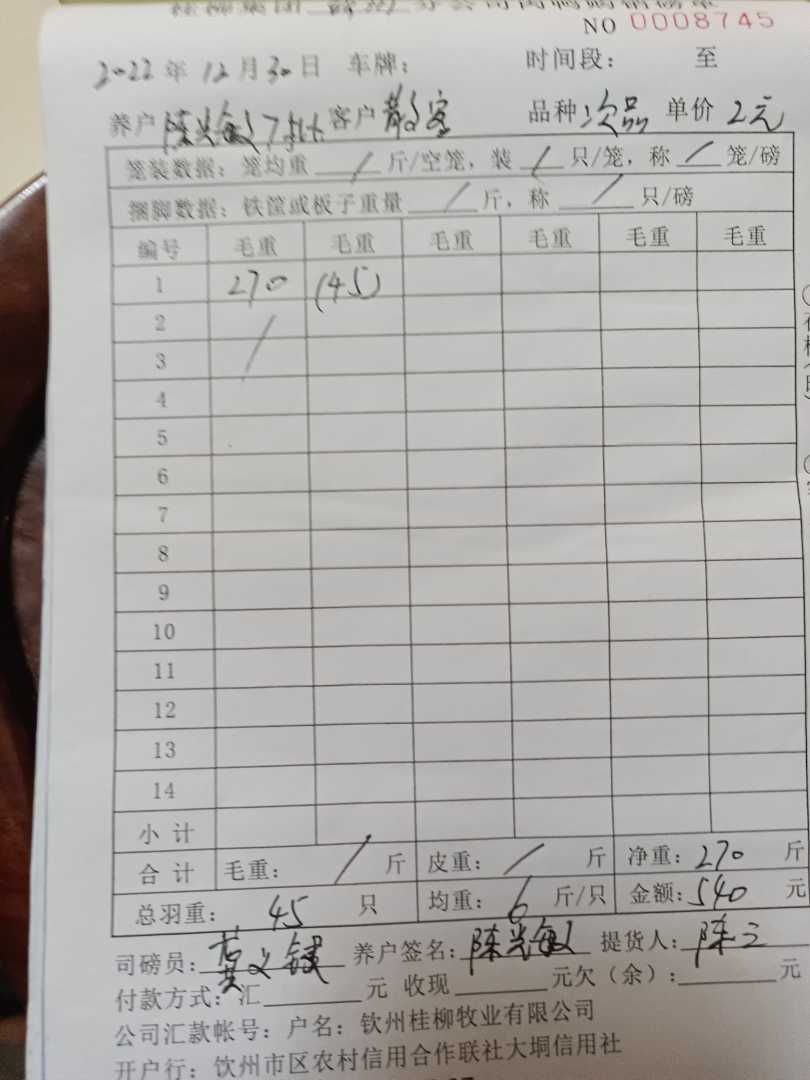 NO 0008745
2022 年 12 月 30 日 车牌: 时间段: 至
养户 陈光敏 客户 散客 品种 次品 单价 2元
笼装数据: 笼均重 / 斤/空笼, 装 / 只/笼, 称 / 笼/磅
捆脚数据: 铁筐或板子重量 / 斤, 称 / 只/磅
编号 毛重 毛重 毛重 毛重 毛重 毛重
1 270 (45)
2 /
3
4
5
6
7
8
9
10
11
12
13
14
小 计
合 计 毛重: / 斤 皮重: / 斤 净重: 270 斤
总羽重: 45 只 均重: 6 斤/只 金额: 540 元
司磅员: 黄 养户签名: 陈光敏 提货人: 陈三
付款方式: 汇 元 收现 元欠(余): 元
公司汇款帐号: 户名: 钦州桂柳牧业有限公司
开户行: 钦州市区农村信用合作联社大垌信用社